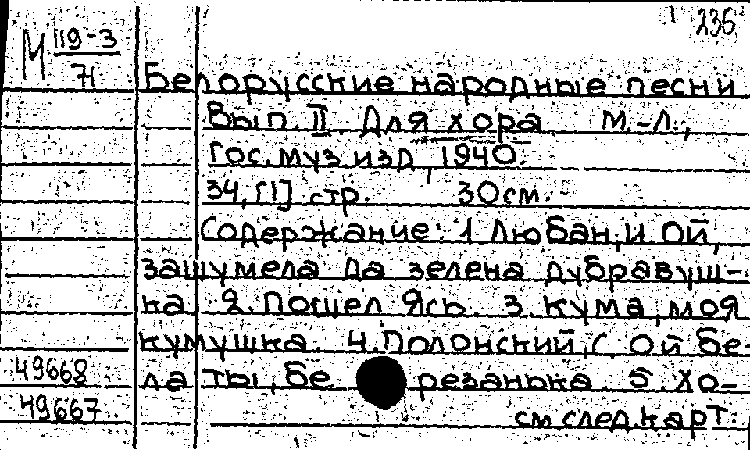 235
М 119-3
71
Белорусские народные песни
Вып. II Для хора М.-Л.,
Гос. муз. изд, 1940.
34, [1] стр. 30см.
Содержание: 1 Любан, И Ой,
зашумела да зелена дубравуш-
ка 2. Пошел Ясь. 3. Кума, моя
кумушка. 4. Полонский, С Ой бе-
49668
ла ты, бе резанька 5. Хо-
49667
см след. карт.